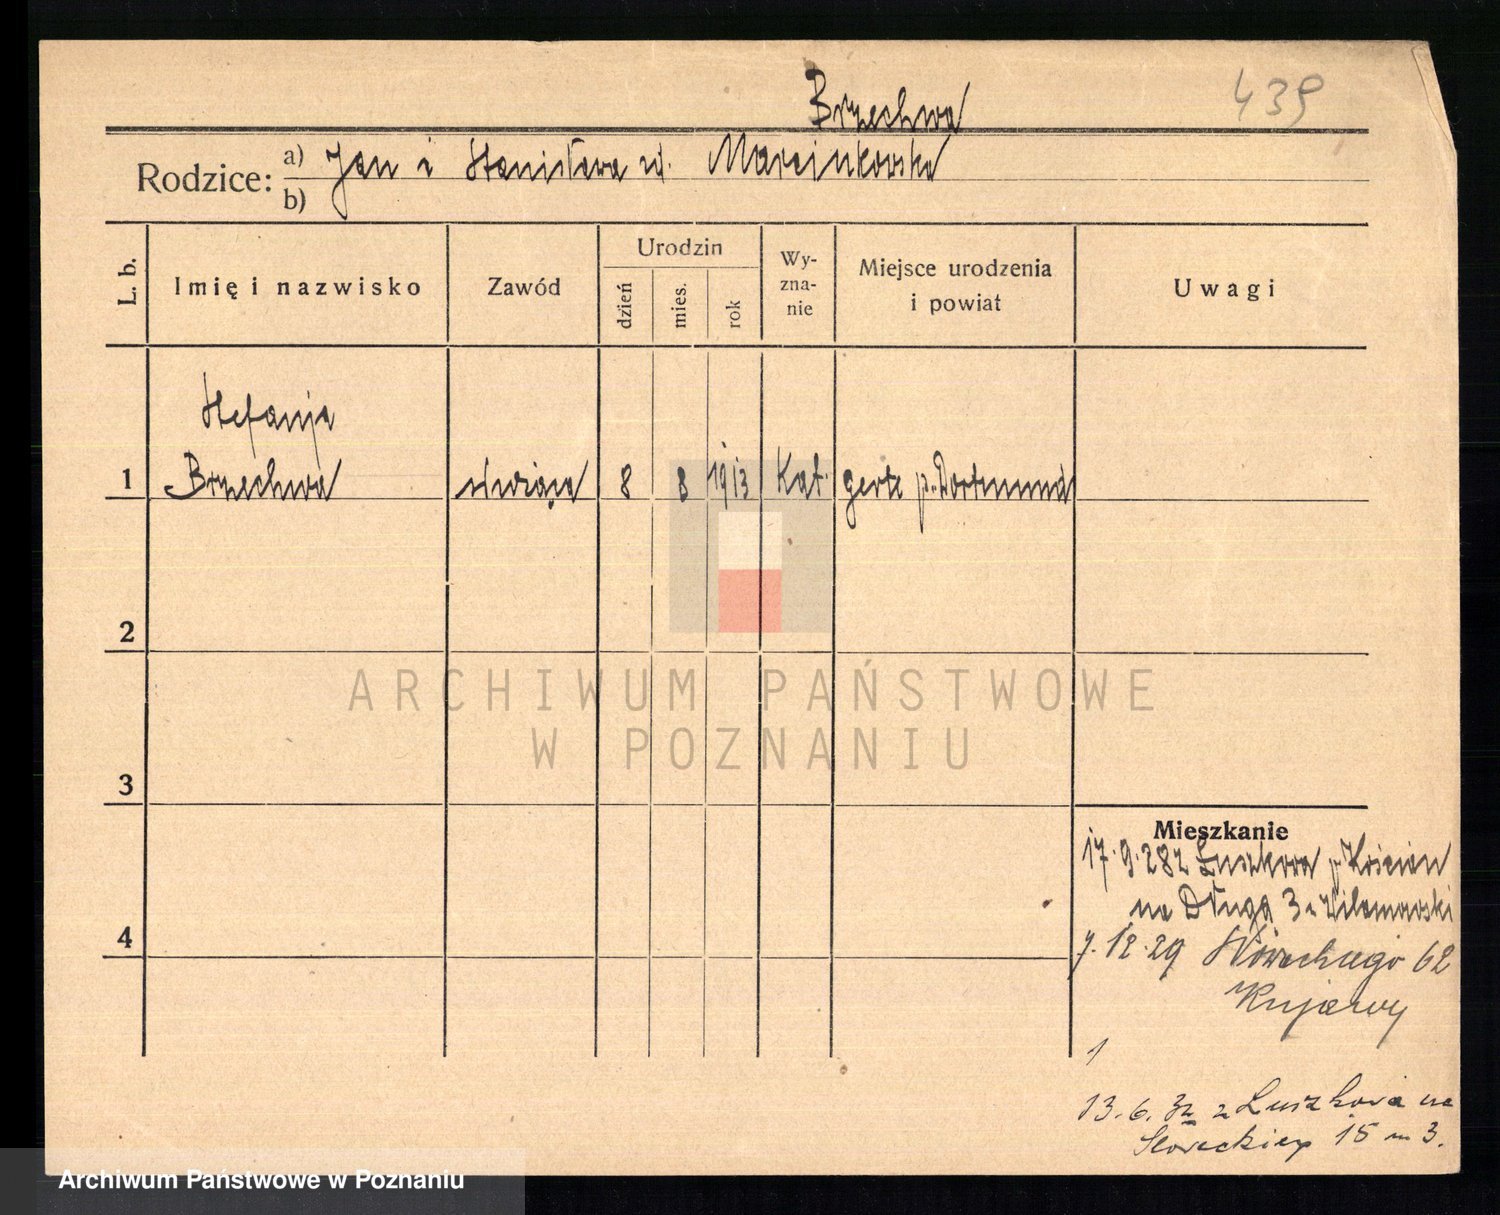 Brzechwa
439
Rodzice: a) Jan i Stanisława zd. Marcinkowska
b)
L. b.
Imię i nazwisko
Zawód
Urodzin
dzień
mies.
rok
Wy-
zna-
nie
Miejsce urodzenia
i powiat
Uwagi
Stefanja
1 Brzechwa służąca 8 8 1913 Kat. p. Dortmund
2
ARCHIWUM PAŃSTWOWE
W POZNANIU
3
Mieszkanie
17.9.28 z Łuszkowa p. Kościan
na Długą 3 u
4
7.12.29 Słowackiego 62
Kujawy
1
13.6.32 z Łuszkowa na
15 m 3.
Archiwum Państwowe w Poznaniu